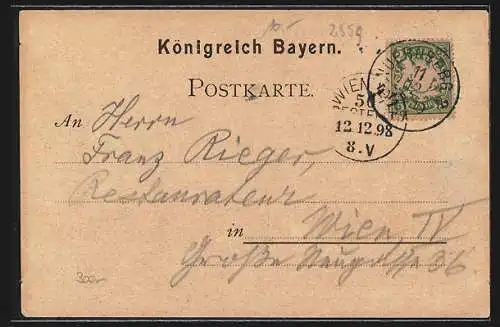 10.- 2559
Königreich Bayern.
POSTKARTE.
NUERNBERG 2
11
WIEN
50
12.12.98
8.V
An Herrn
Franz Rieger,
Restaurateur
in Wien IV
Große Neugasse 36
300.-